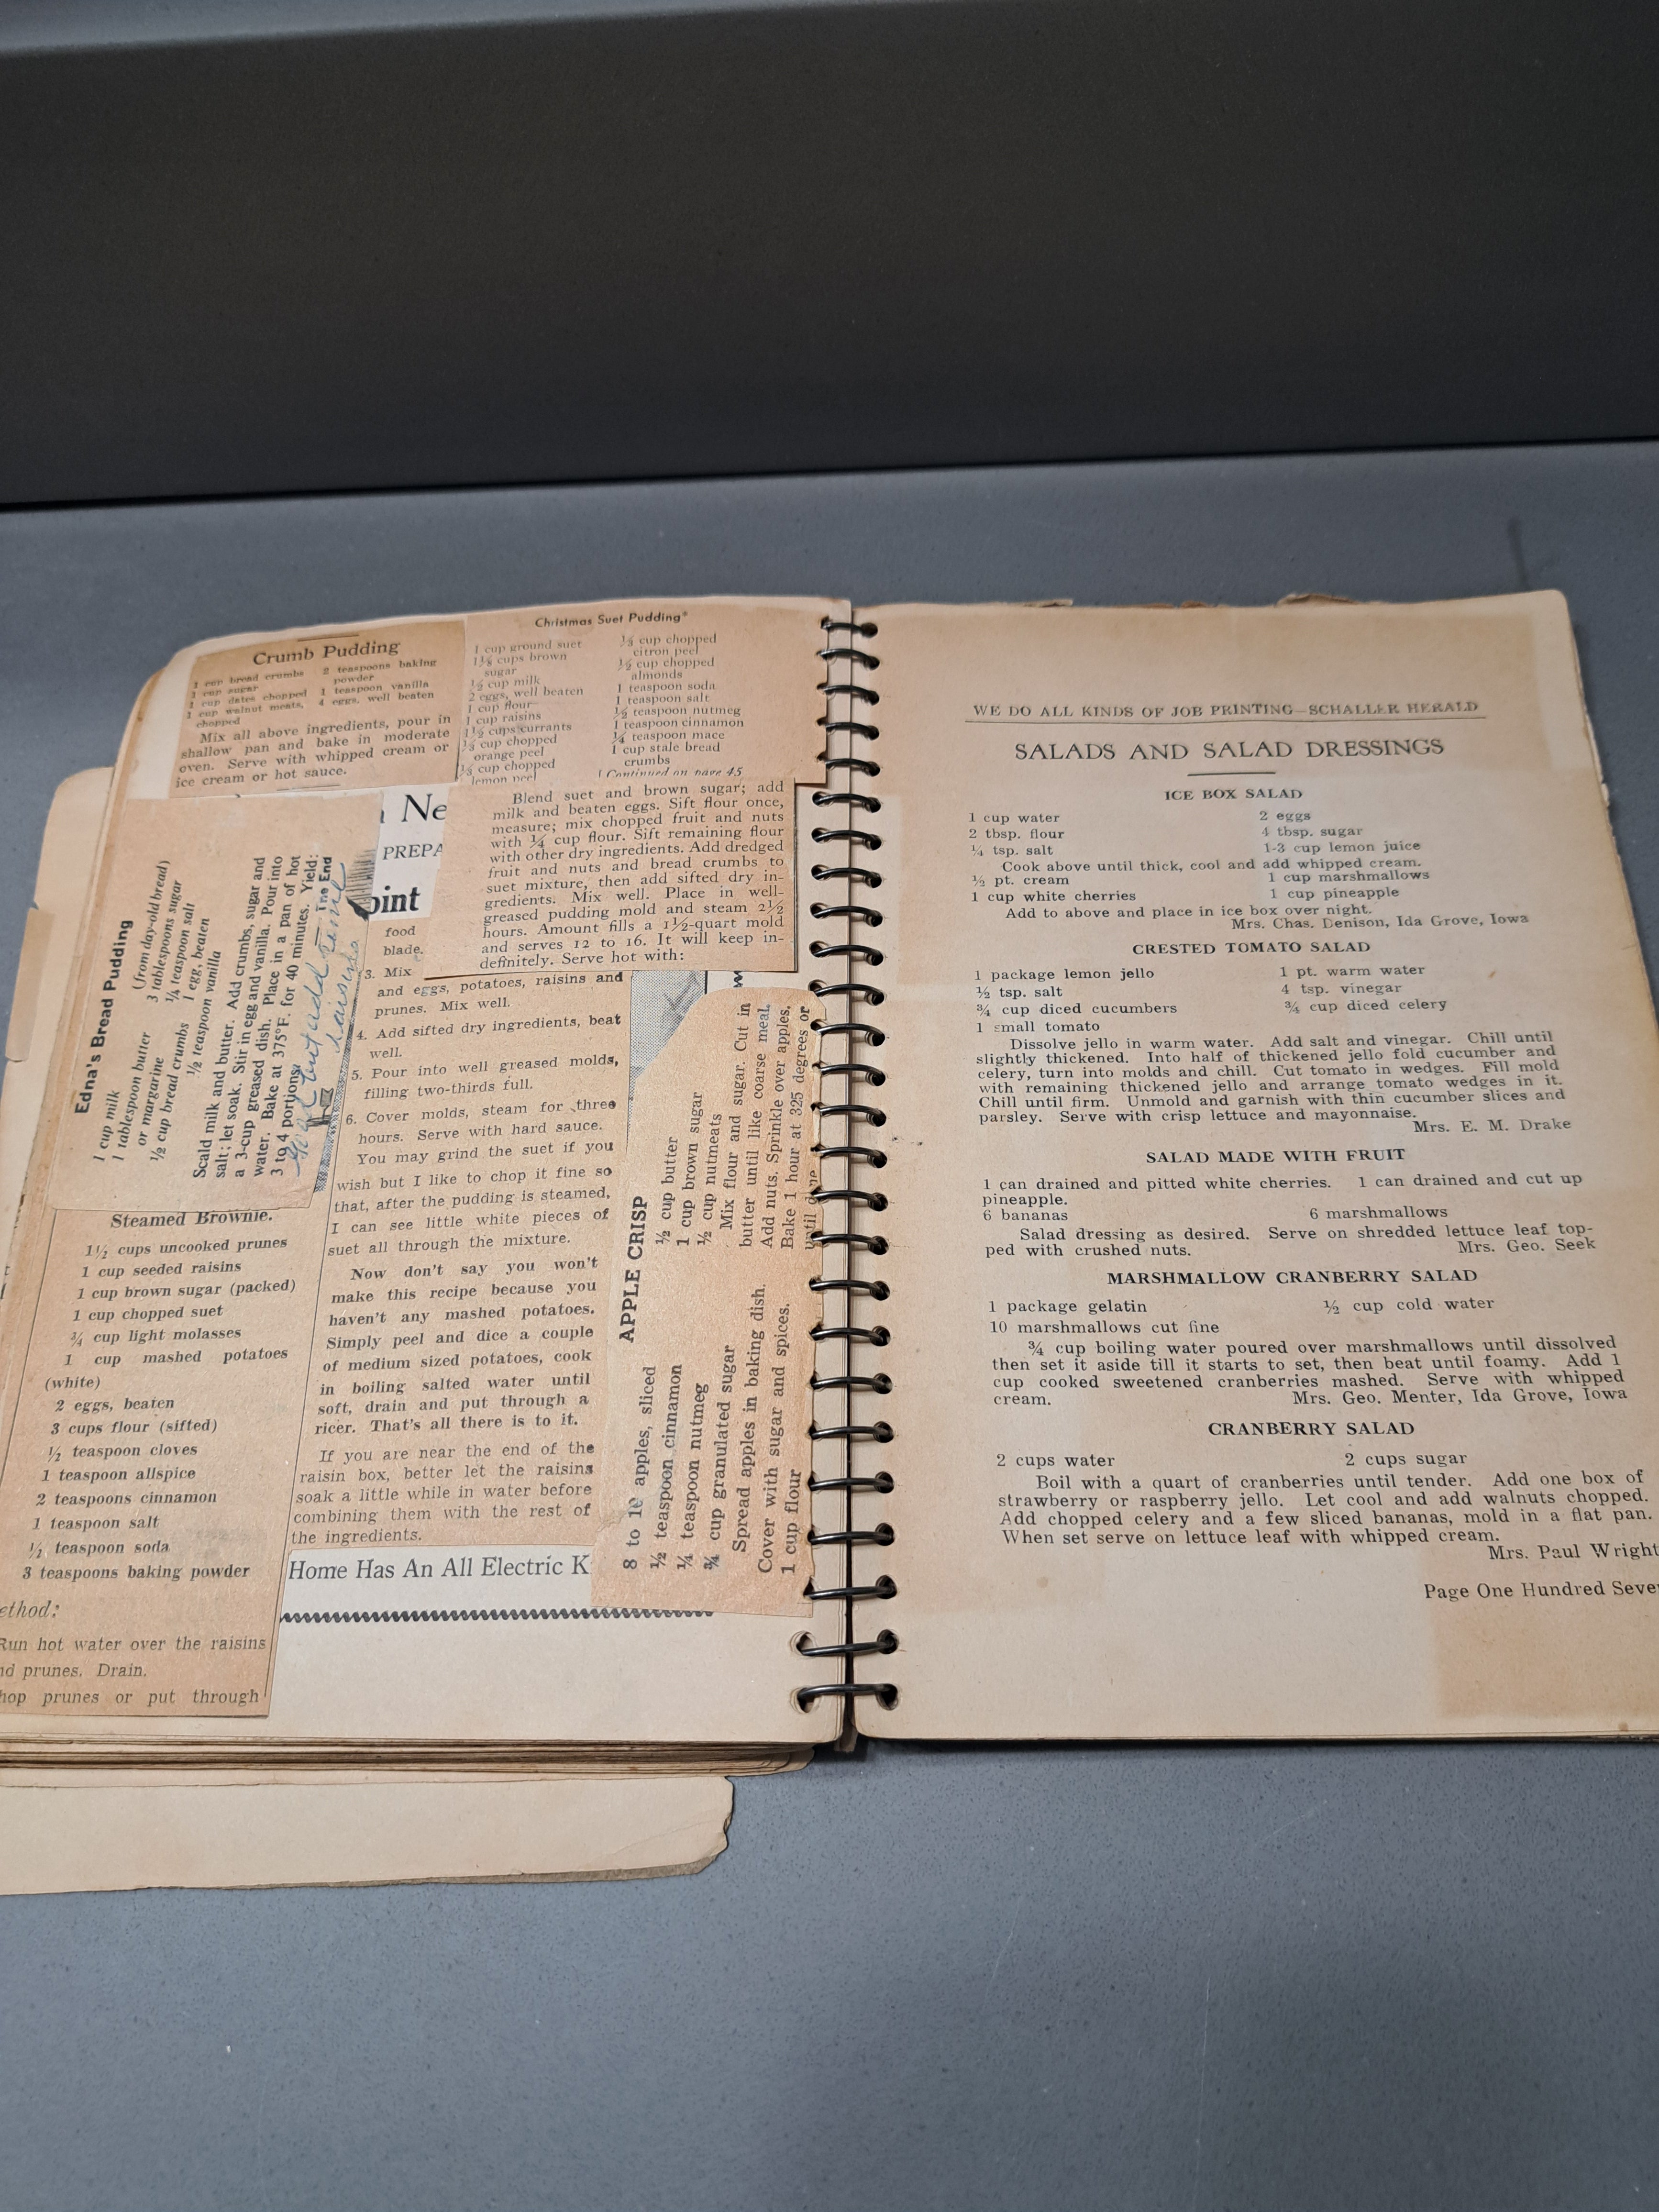 Crumb Pudding
1 cup bread crumbs 2 teaspoons baking
1 cup sugar powder
1 cup dates chopped 1 teaspoon vanilla
1 cup walnut meats, 4 eggs, well beaten
chopped
Mix all above ingredients, pour in
shallow pan and bake in moderate
oven. Serve with whipped cream or
ice cream or hot sauce.
Christmas Suet Pudding*
1 cup ground suet
cups brown
sugar
½ cup milk
2 eggs, well beaten
1 cup flour
1 cup raisins
1½ cups currants
cup chopped
orange peel
cup chopped
lemon peel
cup chopped
citron peel
½ cup chopped
almonds
1 teaspoon soda
1 teaspoon salt
½ teaspoon nutmeg
1 teaspoon cinnamon
¼ teaspoon mace
1 cup stale bread
crumbs
(Continued on page 45
Blend suet and brown sugar; add
milk and beaten eggs. Sift flour once,
measure; mix chopped fruit and nuts
with ¼ cup flour. Sift remaining flour
with other dry ingredients. Add dredged
fruit and nuts and bread crumbs to
suet mixture, then add sifted dry in-
gredients. Mix well. Place in well-
greased pudding mold and steam 2½
hours. Amount fills a 1½-quart mold
and serves 12 to 16. It will keep in-
definitely. Serve hot with:
Ne
PREPA
oint
Edna's Bread Pudding
1 cup milk
1 tablespoon butter
or margarine
½ cup bread crumbs
(from day-old bread)
3 tablespoons sugar
¼ teaspoon salt
1 egg, beaten
½ teaspoon vanilla
Scald milk and butter. Add crumbs, sugar and
salt; let soak. Stir in egg and vanilla. Pour into
a 3-cup greased dish. Place in a pan of hot
water. Bake at 375°F. for 40 minutes. Yield:
3 to 4 portions. — The End
Good but add some
raisins
Steamed Brownie.
1½ cups uncooked prunes
1 cup seeded raisins
1 cup brown sugar (packed)
1 cup chopped suet
¾ cup light molasses
1 cup mashed potatoes
(white)
2 eggs, beaten
3 cups flour (sifted)
½ teaspoon cloves
1 teaspoon allspice
2 teaspoons cinnamon
1 teaspoon salt
½ teaspoon soda
3 teaspoons baking powder
ethod:
Run hot water over the raisins
nd prunes. Drain.
hop prunes or put through
food
blade.
3. Mix
and eggs, potatoes, raisins and
prunes. Mix well.
4. Add sifted dry ingredients, beat
well.
5. Pour into well greased molds,
filling two-thirds full.
6. Cover molds, steam for three
hours. Serve with hard sauce.
You may grind the suet if you
wish but I like to chop it fine so
that, after the pudding is steamed,
I can see little white pieces of
suet all through the mixture.
Now don't say you won't
make this recipe because you
haven't any mashed potatoes.
Simply peel and dice a couple
of medium sized potatoes, cook
in boiling salted water until
soft, drain and put through a
ricer. That's all there is to it.
If you are near the end of the
raisin box, better let the raisins
soak a little while in water before
combining them with the rest of
the ingredients.
Home Has An All Electric K
APPLE CRISP
8 to 10 apples, sliced
½ teaspoon cinnamon
¼ teaspoon nutmeg
¾ cup granulated sugar
Spread apples in baking dish.
Cover with sugar and spices.
1 cup flour
½ cup butter
1 cup brown sugar
½ cup nutmeats
Mix flour and sugar. Cut in
butter until like coarse meal.
Add nuts. Sprinkle over apples.
Bake 1 hour at 325 degrees or
until done
WE DO ALL KINDS OF JOB PRINTING—SCHALLER HERALD
SALADS AND SALAD DRESSINGS
ICE BOX SALAD
1 cup water 2 eggs
2 tbsp. flour 4 tbsp. sugar
¼ tsp. salt 1-3 cup lemon juice
Cook above until thick, cool and add whipped cream.
½ pt. cream 1 cup marshmallows
1 cup white cherries 1 cup pineapple
Add to above and place in ice box over night.
Mrs. Chas. Denison, Ida Grove, Iowa
CRESTED TOMATO SALAD
1 package lemon jello 1 pt. warm water
½ tsp. salt 4 tsp. vinegar
¾ cup diced cucumbers ¾ cup diced celery
1 small tomato
Dissolve jello in warm water. Add salt and vinegar. Chill until
slightly thickened. Into half of thickened jello fold cucumber and
celery, turn into molds and chill. Cut tomato in wedges. Fill mold
with remaining thickened jello and arrange tomato wedges in it.
Chill until firm. Unmold and garnish with thin cucumber slices and
parsley. Serve with crisp lettuce and mayonnaise.
Mrs. E. M. Drake
SALAD MADE WITH FRUIT
1 can drained and pitted white cherries. 1 can drained and cut up
pineapple.
6 bananas 6 marshmallows
Salad dressing as desired. Serve on shredded lettuce leaf top-
ped with crushed nuts. Mrs. Geo. Seek
MARSHMALLOW CRANBERRY SALAD
1 package gelatin ½ cup cold water
10 marshmallows cut fine
¾ cup boiling water poured over marshmallows until dissolved
then set it aside till it starts to set, then beat until foamy. Add 1
cup cooked sweetened cranberries mashed. Serve with whipped
cream. Mrs. Geo. Menter, Ida Grove, Iowa
CRANBERRY SALAD
2 cups water 2 cups sugar
Boil with a quart of cranberries until tender. Add one box of
strawberry or raspberry jello. Let cool and add walnuts chopped.
Add chopped celery and a few sliced bananas, mold in a flat pan.
When set serve on lettuce leaf with whipped cream.
Mrs. Paul Wright
Page One Hundred Seve